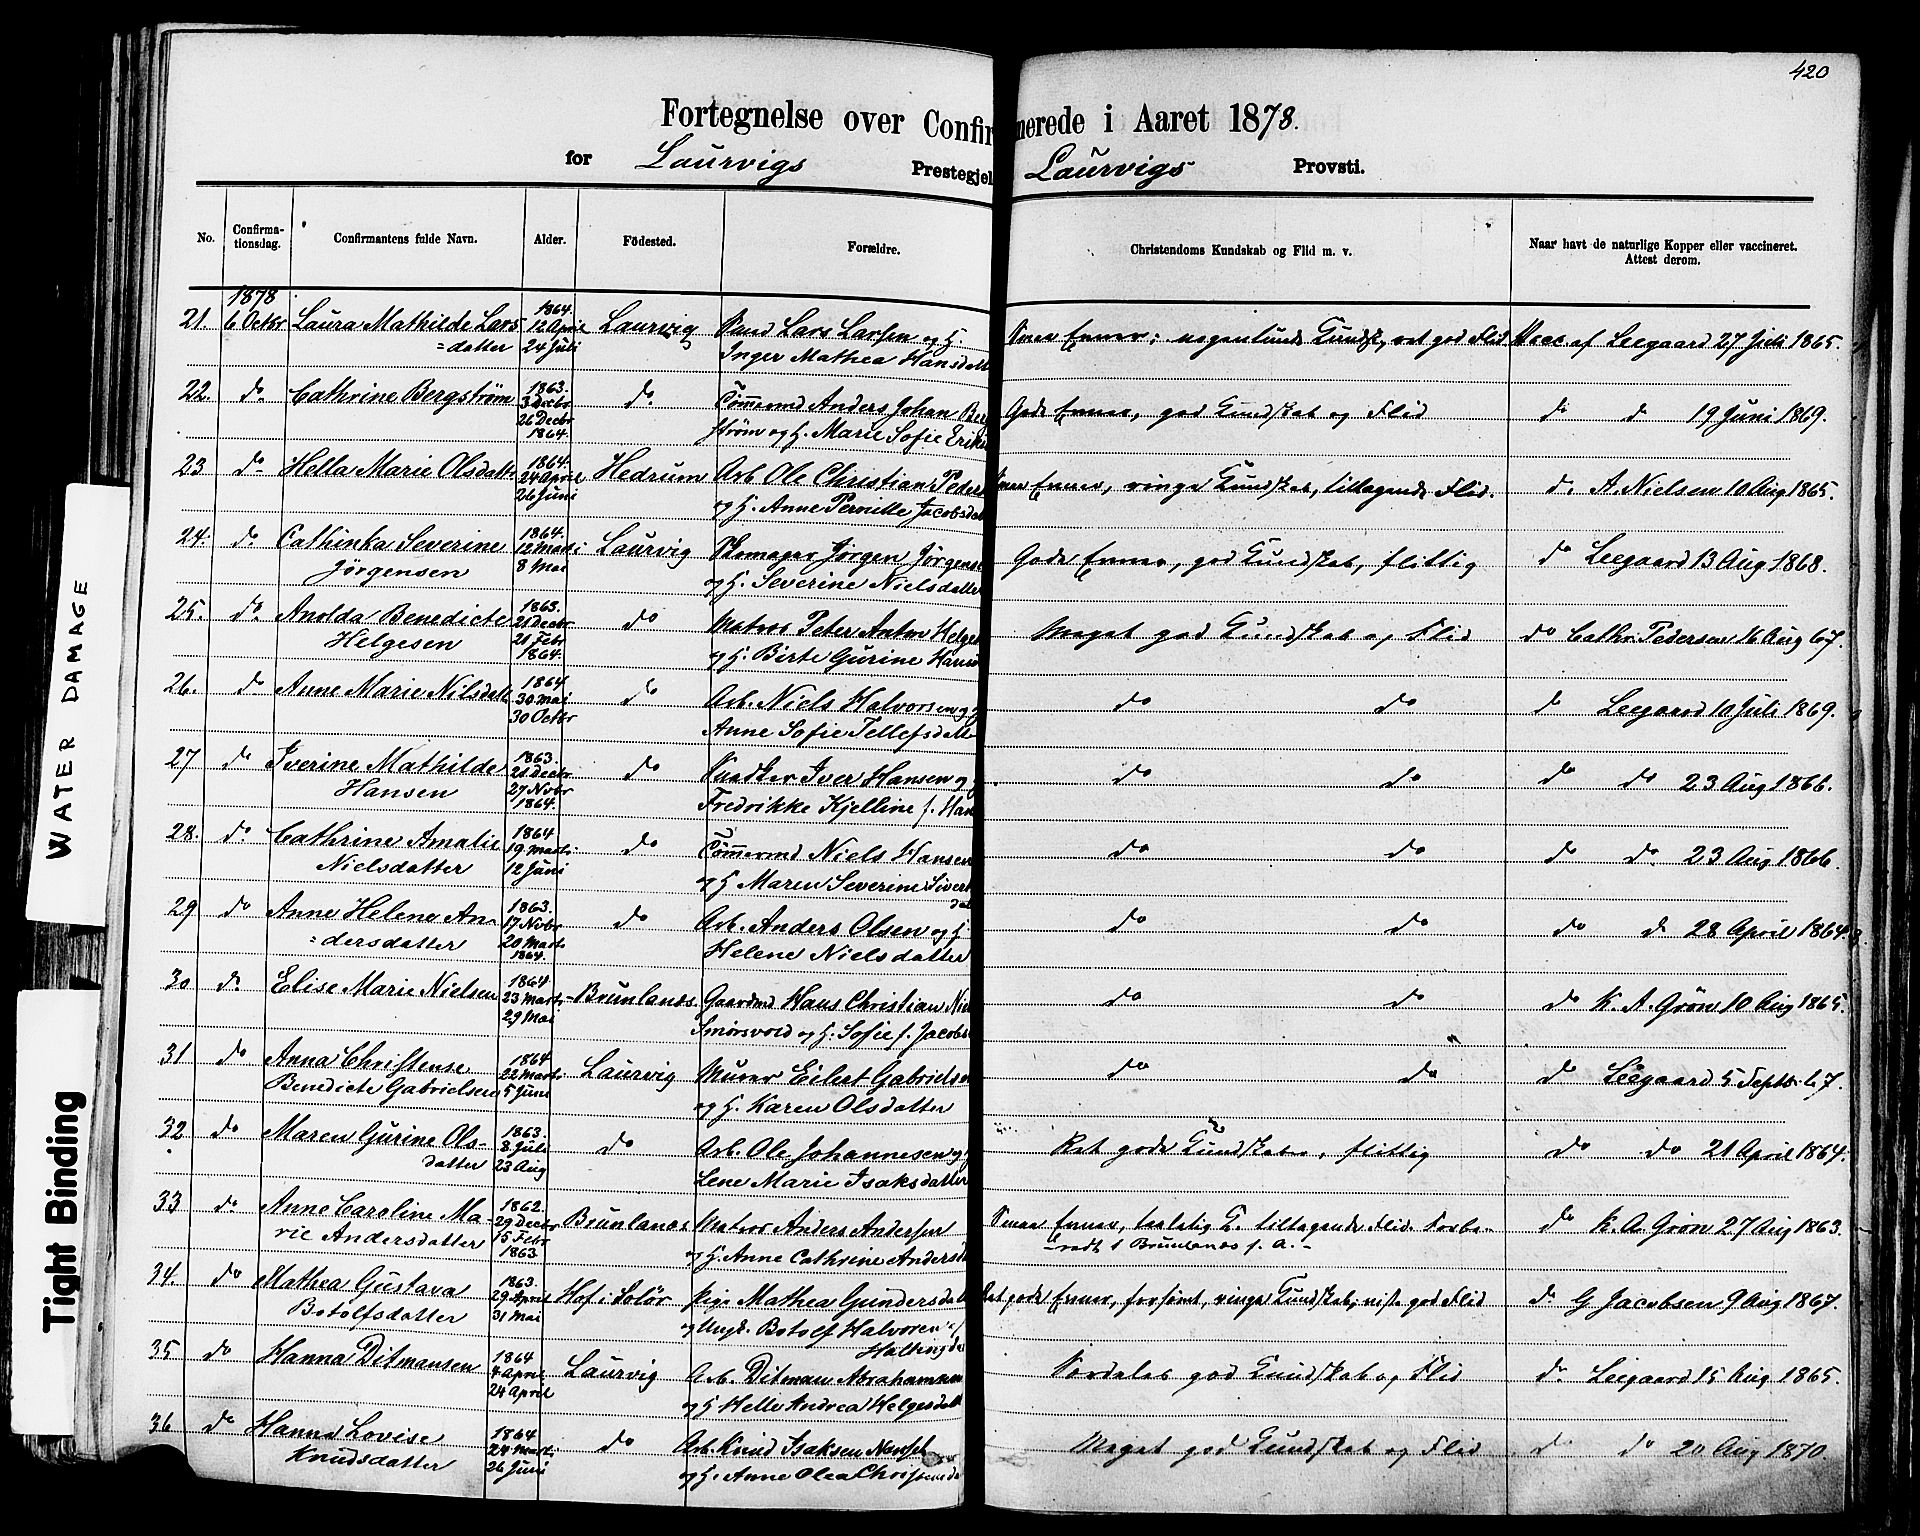 420
Fortegnelse over Confir merede i Aaret 1878.
for Laurvigs Prestegjel Laurvigs Provsti.
No. Confirma- tionsdag. Confirmantens fulde Navn. Alder. Födested. Forældre. Christendoms Kundskab og Flid m. v. Naar havt de naturlige Kopper eller vaccineret. Attest derom.
1878 1864.
21. 6 Octbr Laura Mathilde Lars 12 April Laurvig Lars Larsen og H. Smaa Evner; nogenlunde Kundsk, ret god Flid Vacc. af Leegaard 27 Juli 1865.
=datter 24 Juli Inger Mathea Hansdatt
1863.
22. do Cathrine Bergstrøm 3 Decbr do. Tömmermd Anders Johan Berg Gode Evner, god Kundskab og Flid do d 19 Juni 1869.
26 Decbr strøm og H. Marie Sofie Eriks
1864.
1864.
23 do Hella Marie Olsdatt 24 April Hedrum Arb. Ole Christian Peders Smaa Evner, ringe Kundskab, tiltagende Flid. d. A. Nielsen 10 Aug 1865.
26 Juni og H. Anne Pernille Jacobsdatt
1864.
24. d. Cathinka Severine 12 Marts Laurvig Skomager Jørgen Jørgens Gode Evner, god Kundskab, flittig do Leegaard 13 Aug 1868.
Jørgensen 8 Mai og H. Severine Nielsdatter
1863.
25. do Anolda Benedicte 25 Decbr do Matros Peter Anton Helges Meget god Kundskab og Flid do Cathr. Pedersen 16 Aug 67.
Helgesen 21 Febr og H. Birte Gurine Hans
1864.
1864
26. do Anne Marie Nilsdatt 30 Mai do Arb. Niels Halvorsen og H do do do Leegaard 10 Juli 1869.
30 Octbr Anne Sofie Tellefsdatt
1863.
27 do Iverine Mathilde 21 Decbr do Snedker Iver Hansen og H do do do do 23 Aug 1866.
Hansen 27 Novbr Fredrikke Kjelline f. Han
1864.
1864
28. do Cathrine Amalie 19 Marts do Tömmermd Niels Hansen do do do do 23 Aug 1866.
Nielsdatter 12 Juni og H Maren Severine Sivert
dat
1863.
29 do Anne Helene An- 17 Nvbr do Arb. Anders Olsen og H. do do do d. 28 April 1864.
=dersdatter 20 Marts Helene Nielsdatter
1864.
1864
30 d. Elise Marie Nielsen 23 Marts Brunlanæs Gaardmd Hans Christian Nie do do do K. A. Grøn 10 Aug 1865.
29 Mai Smørsvold og H. Sofie f. Jacobs
1864
31 do Anna Christense 22 Marts Laurvig Murer Eilert Gabrielsen do do do Leegaard 5 Septbr 67.
Benedicte Gabrielsen 5 Juni og H. Karen Olsdatter
1863.
32 do Maren Gurine Ols- 8 Juli do Arb. Ole Johannesen og H Ret gode Kundskaber, flittig do do 21 April 1864.
datter 23 Aug Lene Marie Isaksdatter
1862.
33 do Anne Caroline Ma- 29 Decbr Brunlanæs Matros Anders Andersen Smaa Evner, taalelig K. tiltagende Flid. Forbe- do K. A. Grøn 27 Aug 1863.
rie Andersdatter 15 Febr og H. Anne Cathrine Andersd -redt i Brunlanæs f. A.-
1863
1863.
34. do Mathea Gustava 29 April Hof i Solör Pige Mathea Gundersdatt Ret gode Evner, forsømt, ringe Kundskab; viste god Flid do G Jacobsen 9 Aug 1867.
Botolfsdatter 31 Mai og Ungk. Botolf Halvorsen
1864
35 do Hanna Ditmansen 4 April Laurvig Arb. Ditman Abrahamsen Særdeles god Kundskab og Flid do. Leegaard 15 Aug 1865.
24 April og H Helle Andrea Helgesdatt
1864
36 do Hanna Lovise 24 Marts do Arb. Knud Isaksen Meget god Kundskab og Flid do do 20 Aug 1870.
Knudsdatter 26 Juni og H. Anne Olea Christensd
WATER DAMAGE
Tight Binding